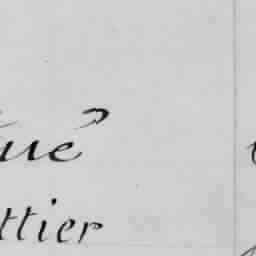 ué
ttier